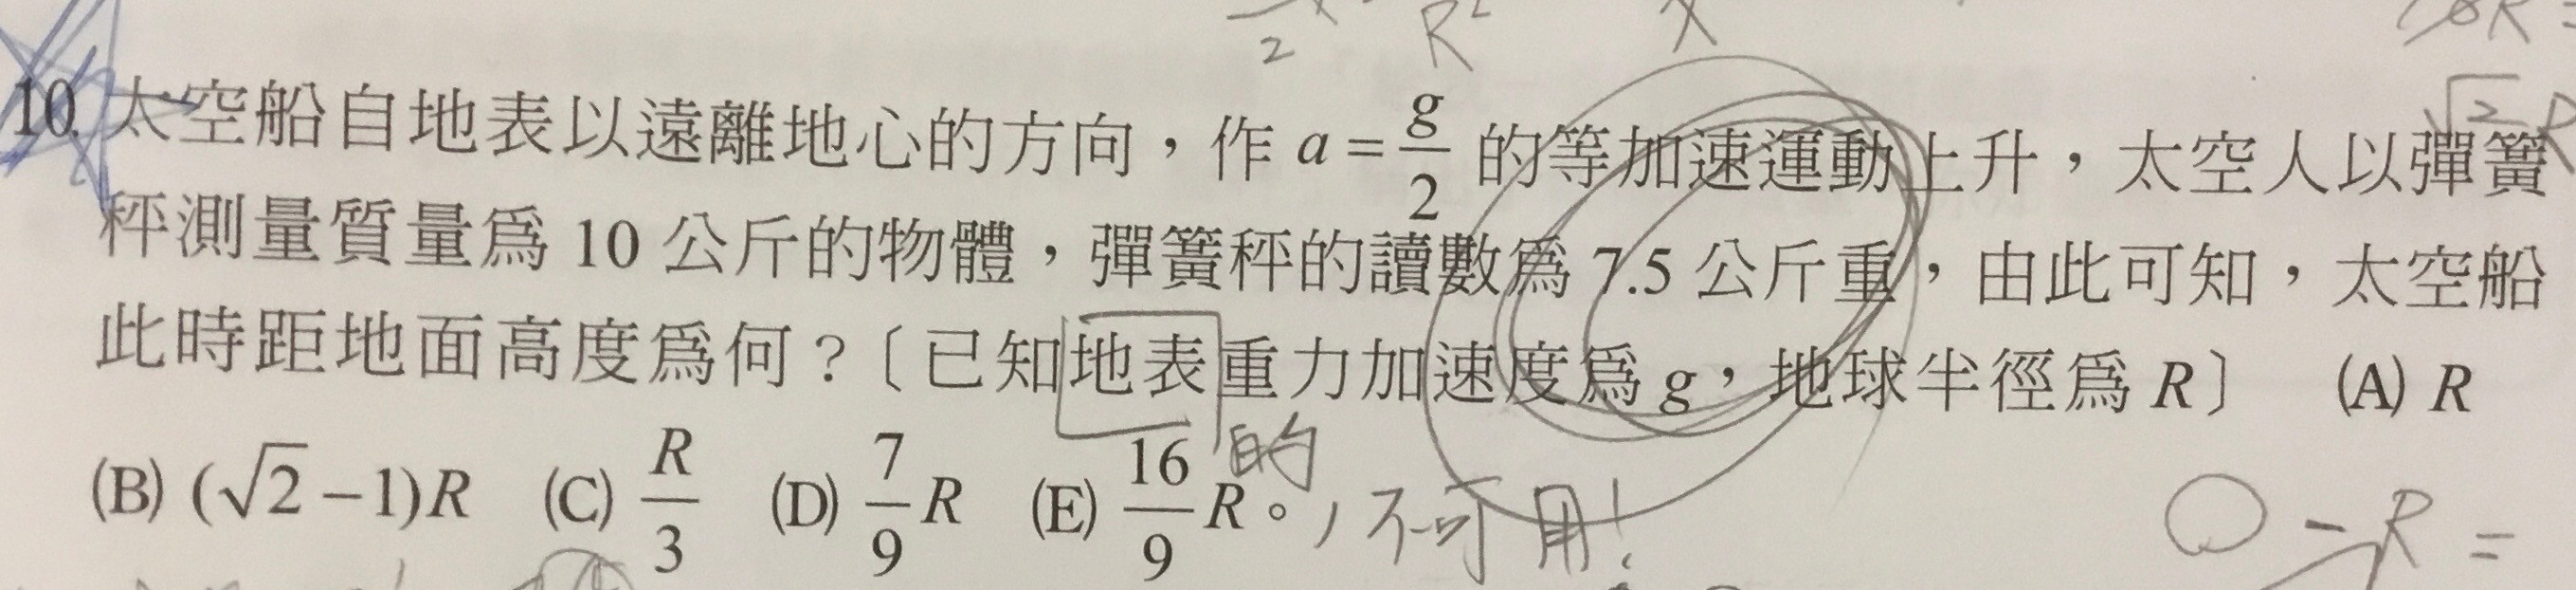 2 R² X
√2 R
10. 太空船自地表以遠離地心的方向，作 a = g/2 的等加速運動上升，太空人以彈簧
秤測量質量為 10 公斤的物體，彈簧秤的讀數為 7.5 公斤重，由此可知，太空船
此時距地面高度為何？〔已知地表重力加速度為 g，地球半徑為 R〕 (A) R
(B) (√2 −1)R (C) R/3 (D) 7/9 R (E) 16/9 R。
的，不可用！
− R =